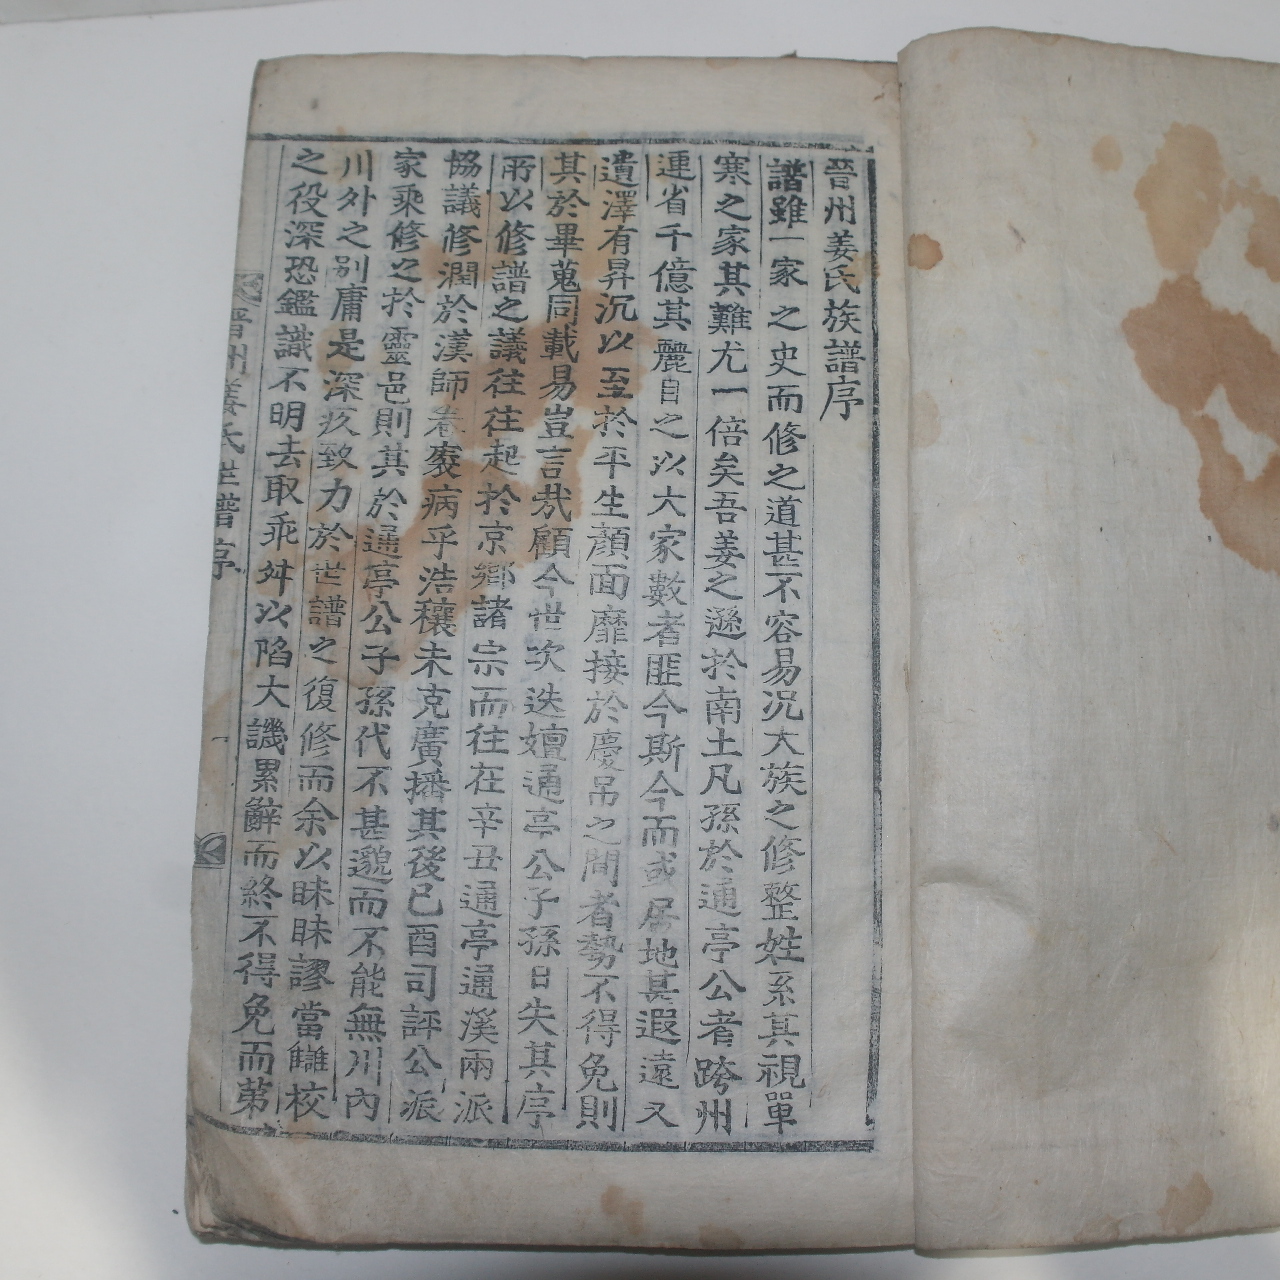 晉州姜氏族譜序
譜雖一家之史而修之道甚不容易況大族之修整姓系其視單
寒之家其難尤一倍矣吾姜之遜於南土凡孫於通亭公者跨州
連省千億其麗目之以大家數者匪今斯今而或居地甚遐遠又
遺澤有昇沉以至於平生顔面靡接於慶吊之間者勢不得免則
其於畢蒐同載易豈言哉顧今世次迭嬗通亭公子孫日失其序
所以修譜之議往往起於京鄉諸宗而往在辛丑通亭通溪兩派
協議修潤於漢師卷袠病乎浩穰未克廣播其後己酉司評公派
家乘修之於靈邑則其於通亭公子孫代不甚邈而不能無川內
川外之別庸是深疚致力於世譜之復修而余以昧昧謬當讎校
之役深恐鑑識不明去取乖舛以陷大譏累辭而終不得免而第
晉州姜氏世譜序